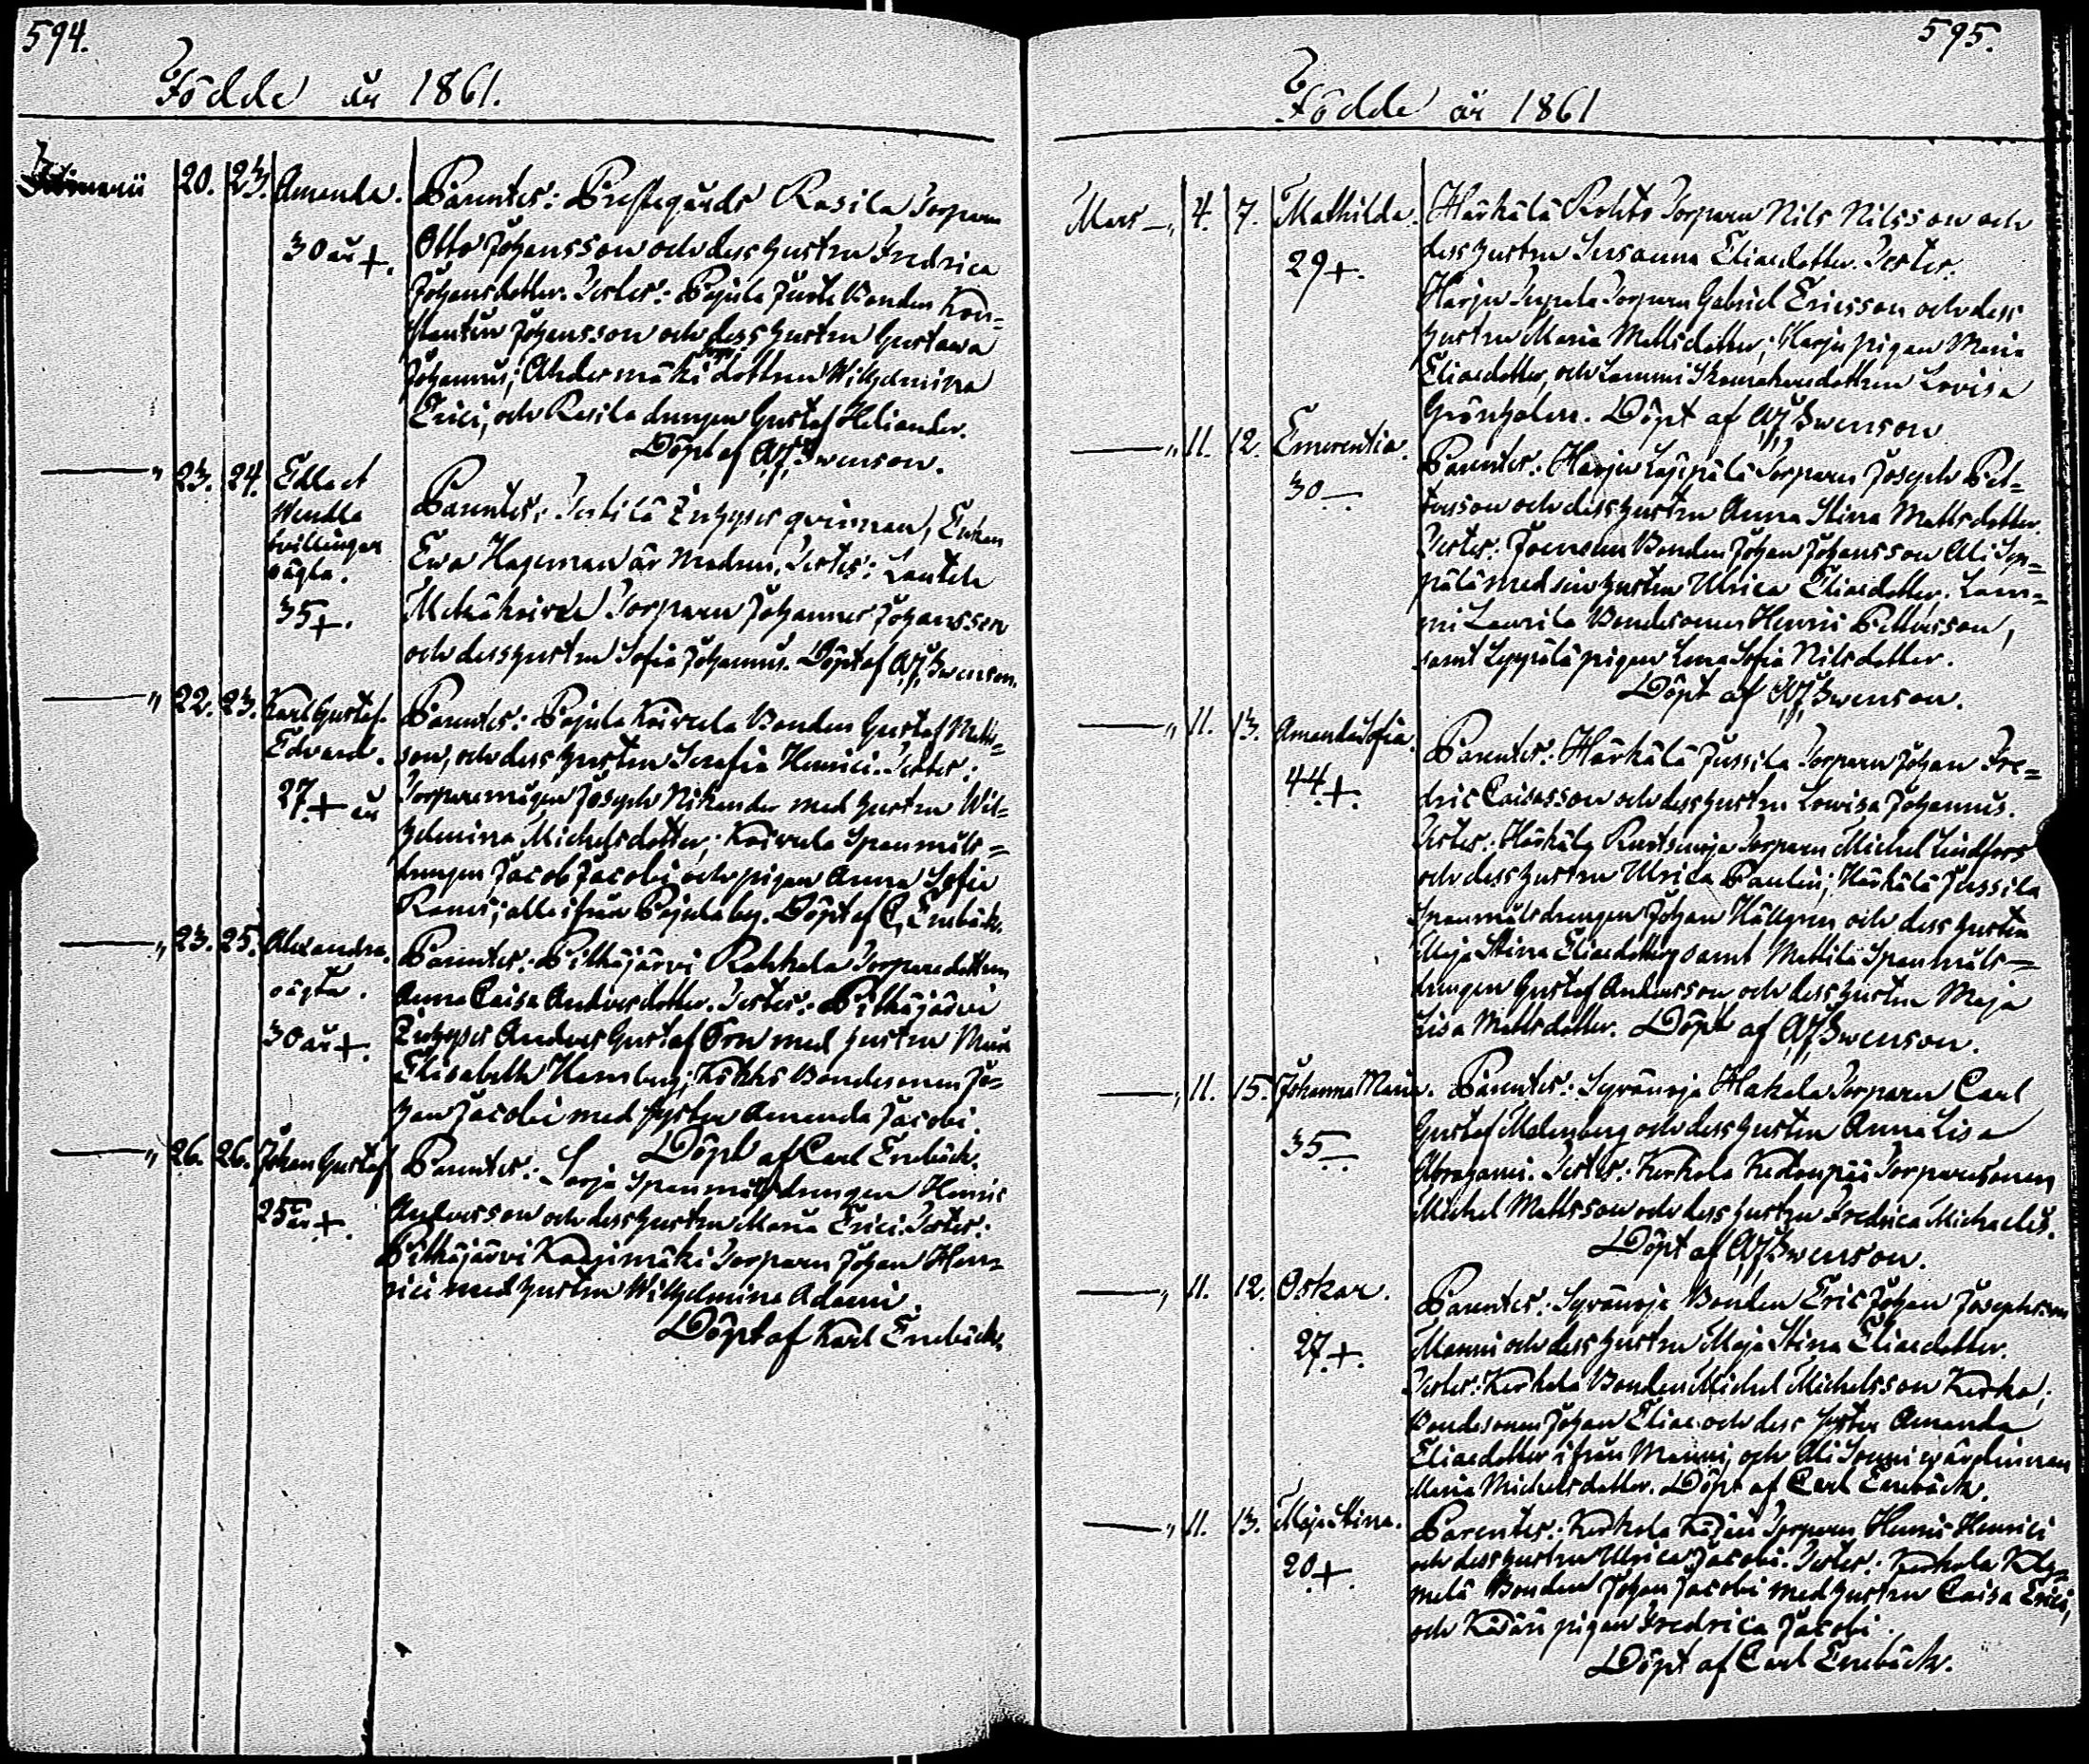 594.
Födde år 1861.
20. 23. Amanda. Parentes: Prestegårds Rasila Torparen
30 år +. Otto Johansson och dess hustru Fredrica
Johansdotter. Testes: Pajula Juste Bonden Kon=
stantin Johansson och dess hustru Gustawa
Johannis; Ahdermäki dottren Wilhelmina
Erici, och Rasila drengen Gustaf Heliander.
Döpt af Swenson.
— „ 23. 24. Edla et
Wendla
tvillingar
oägta.
35 +.
Parentes: Inhyses qvinnan, Enkan
Ewa Hageman är modren. Testes: Lautela
Torparen Johannes Johansson
och dess hustru Sofia Johannis. Döpt af Swenson.
— „ 22. 23. Karl Gustaf
Edvard.
27 + år
Parentes: Pajula Koivula Bonden Gustaf Matts=
son, och dess hustru Serafia Henrici. Testes:
Torparemågen Joseph Nikander med hustru Wil=
helmina Michelsdotter; Koivula Spanmåls=
drengen Jacob Jacobi och pigan Anna Sofia
alla ifrån Pajula by. Döpt af C. Enebäck.
— „ 23. 25. Alexandra.
oägta.
30 år +.
Parentes: Pitkäjärvi Rahkola Torparedottren
Anna Caisa Andersdotter. Testes: Pitkäjärvi
Inhyses Anders Gustaf Örn med hustru Maria
Elisabeth Hamberg; Bondesonen Jo=
han Jacobi med syster Amanda Jacobi.
Döpt af Carl Enebäck.
— „ 26. 26. Johan Gustaf
25 år +.
Parentes: Sarja Spanmålsdrengen Henric
Andersson och dess hustru Maria Erici. Testes:
Pitkäjärvi Torparen Johan Hen=
rici med hustru Wilhelmina Adami.
Döpt af Karl Enebäck.
595.
Födde år 1861
Mars — „ 4. 7. Mathilda. Härkälä Torparen Nils Nilsson och
29 +. dess hustru Susanna Eliaedotter. Testes:
Harju Torparen Gabriel Ericsson och dess
hustru Maria Mattsdotter; Harju pigan Maria
Eliaedotter, och Lammi Skomakaredottren Lovisa
Grönholm. Döpt af Swenson
— „ 11. 12. Emerentia.
30 —
Parentes: Harju Torparen Joseph Pet=
tersson och dess hustru Anna Stina Mattsdotter.
Testes: Joensuu Bonden Johan Johansson Ali Sep=
pälä med sin hustru Ulrica Eliaedotter. Lam=
mi Laurila Bondesonen Henric Pettersson,
samt Seppälä pigan Lena Sofia Nilsdotter.
Döpt af Swenson.
— „ 11. 13. Amanda Sofia.
44 +.
Parentes: Härkälä Jussila Torparen Johan Fre=
dric Caisasson och dess hustru Lowisa Johannis.
Testes: Härkälä Torparen Michel Lindfors
och dess hustru Ulrica Paulin; Härkälä Jussila
Spanmålsdrengen Johan Hällgren och dess hustru
Maja Stina Eliaedotter, samt Mattila Spanmåls=
drengen Gustaf Andersson och dess hustru Maja
Lisa Mattsdotter. Döpt af Swenson.
— „ 11. 15. Johanna Maria.
35 —
Parentes: Syränoja Hakala Torparen Carl
Gustaf Malmberg och dess hustru Anna Lisa
Abrahami. Testes: Kerkola Torparesonen
Michel Mattsson och dess hustru Fredrica Michaelis.
Döpt af Swenson.
— „ 11. 12. Oskar.
27 +.
Parentes: Syränoja Bonden Eric Johan Josephsson
Manni och dess hustru Maja Stina Eliaedotter.
Testes: Kerkola Bonden Michel Michelsson Kerko;
Bondesonen Johan Eliae och dess syster Amanda
Eliaedotter ifrån Manni, och Ali Sonni wärdinnan
Maria Michelsdotter. Döpt af Carl Enebäck.
— „ 11. 13. Maja Stina.
20 +.
Parentes: Kerkola Torparen Henric Henrici
och dess hustru Ulrica Jacobi. Testes: Kerkola
Bonden Johan Jacobi med hustru Caisa Erici,
och pigan Fredrica Jacobi.
Döpt af Carl Enebäck.